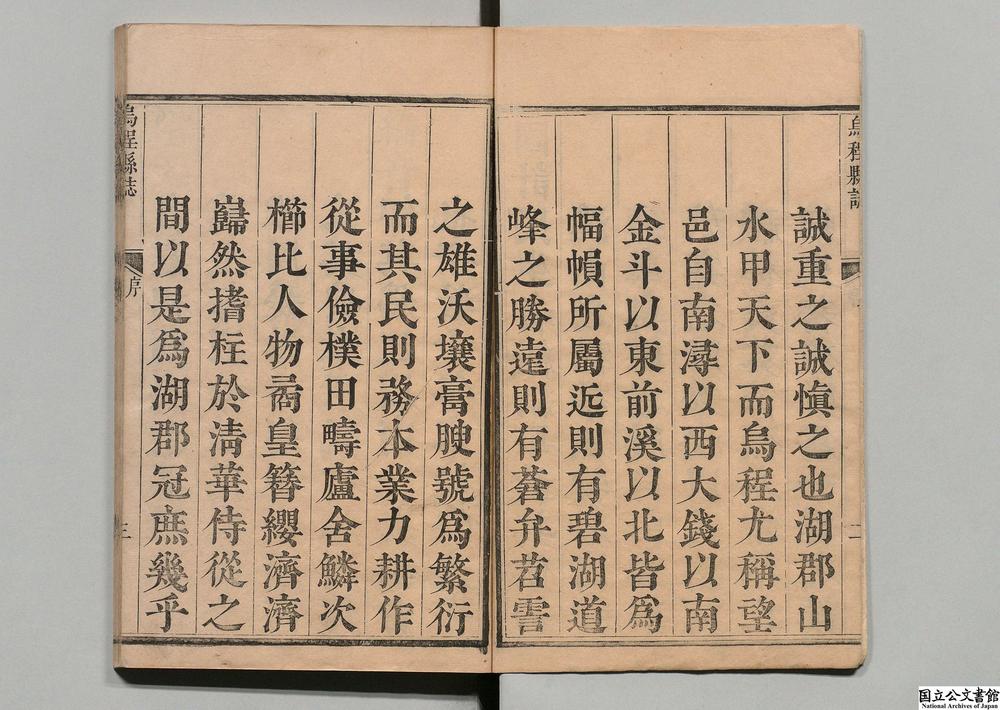 烏程縣誌
二
誠重之誠慎之也湖郡山
水甲天下而烏程尤稱望
邑自南潯以西大錢以南
金斗以東前溪以北皆爲
幅幀所屬近則有碧湖道
峰之勝遠則有蒼弁苕霅
之雄沃壤膏腴號爲繁衍
而其民則務本業力耕作
從事儉樸田疇廬舍鱗次
櫛比人物矞皇簪纓濟濟
巋然搘柱於淸華侍從之
間以是爲湖郡冠庶幾乎
烏程縣誌
序
三
国立公文書館
National Archives of Japan